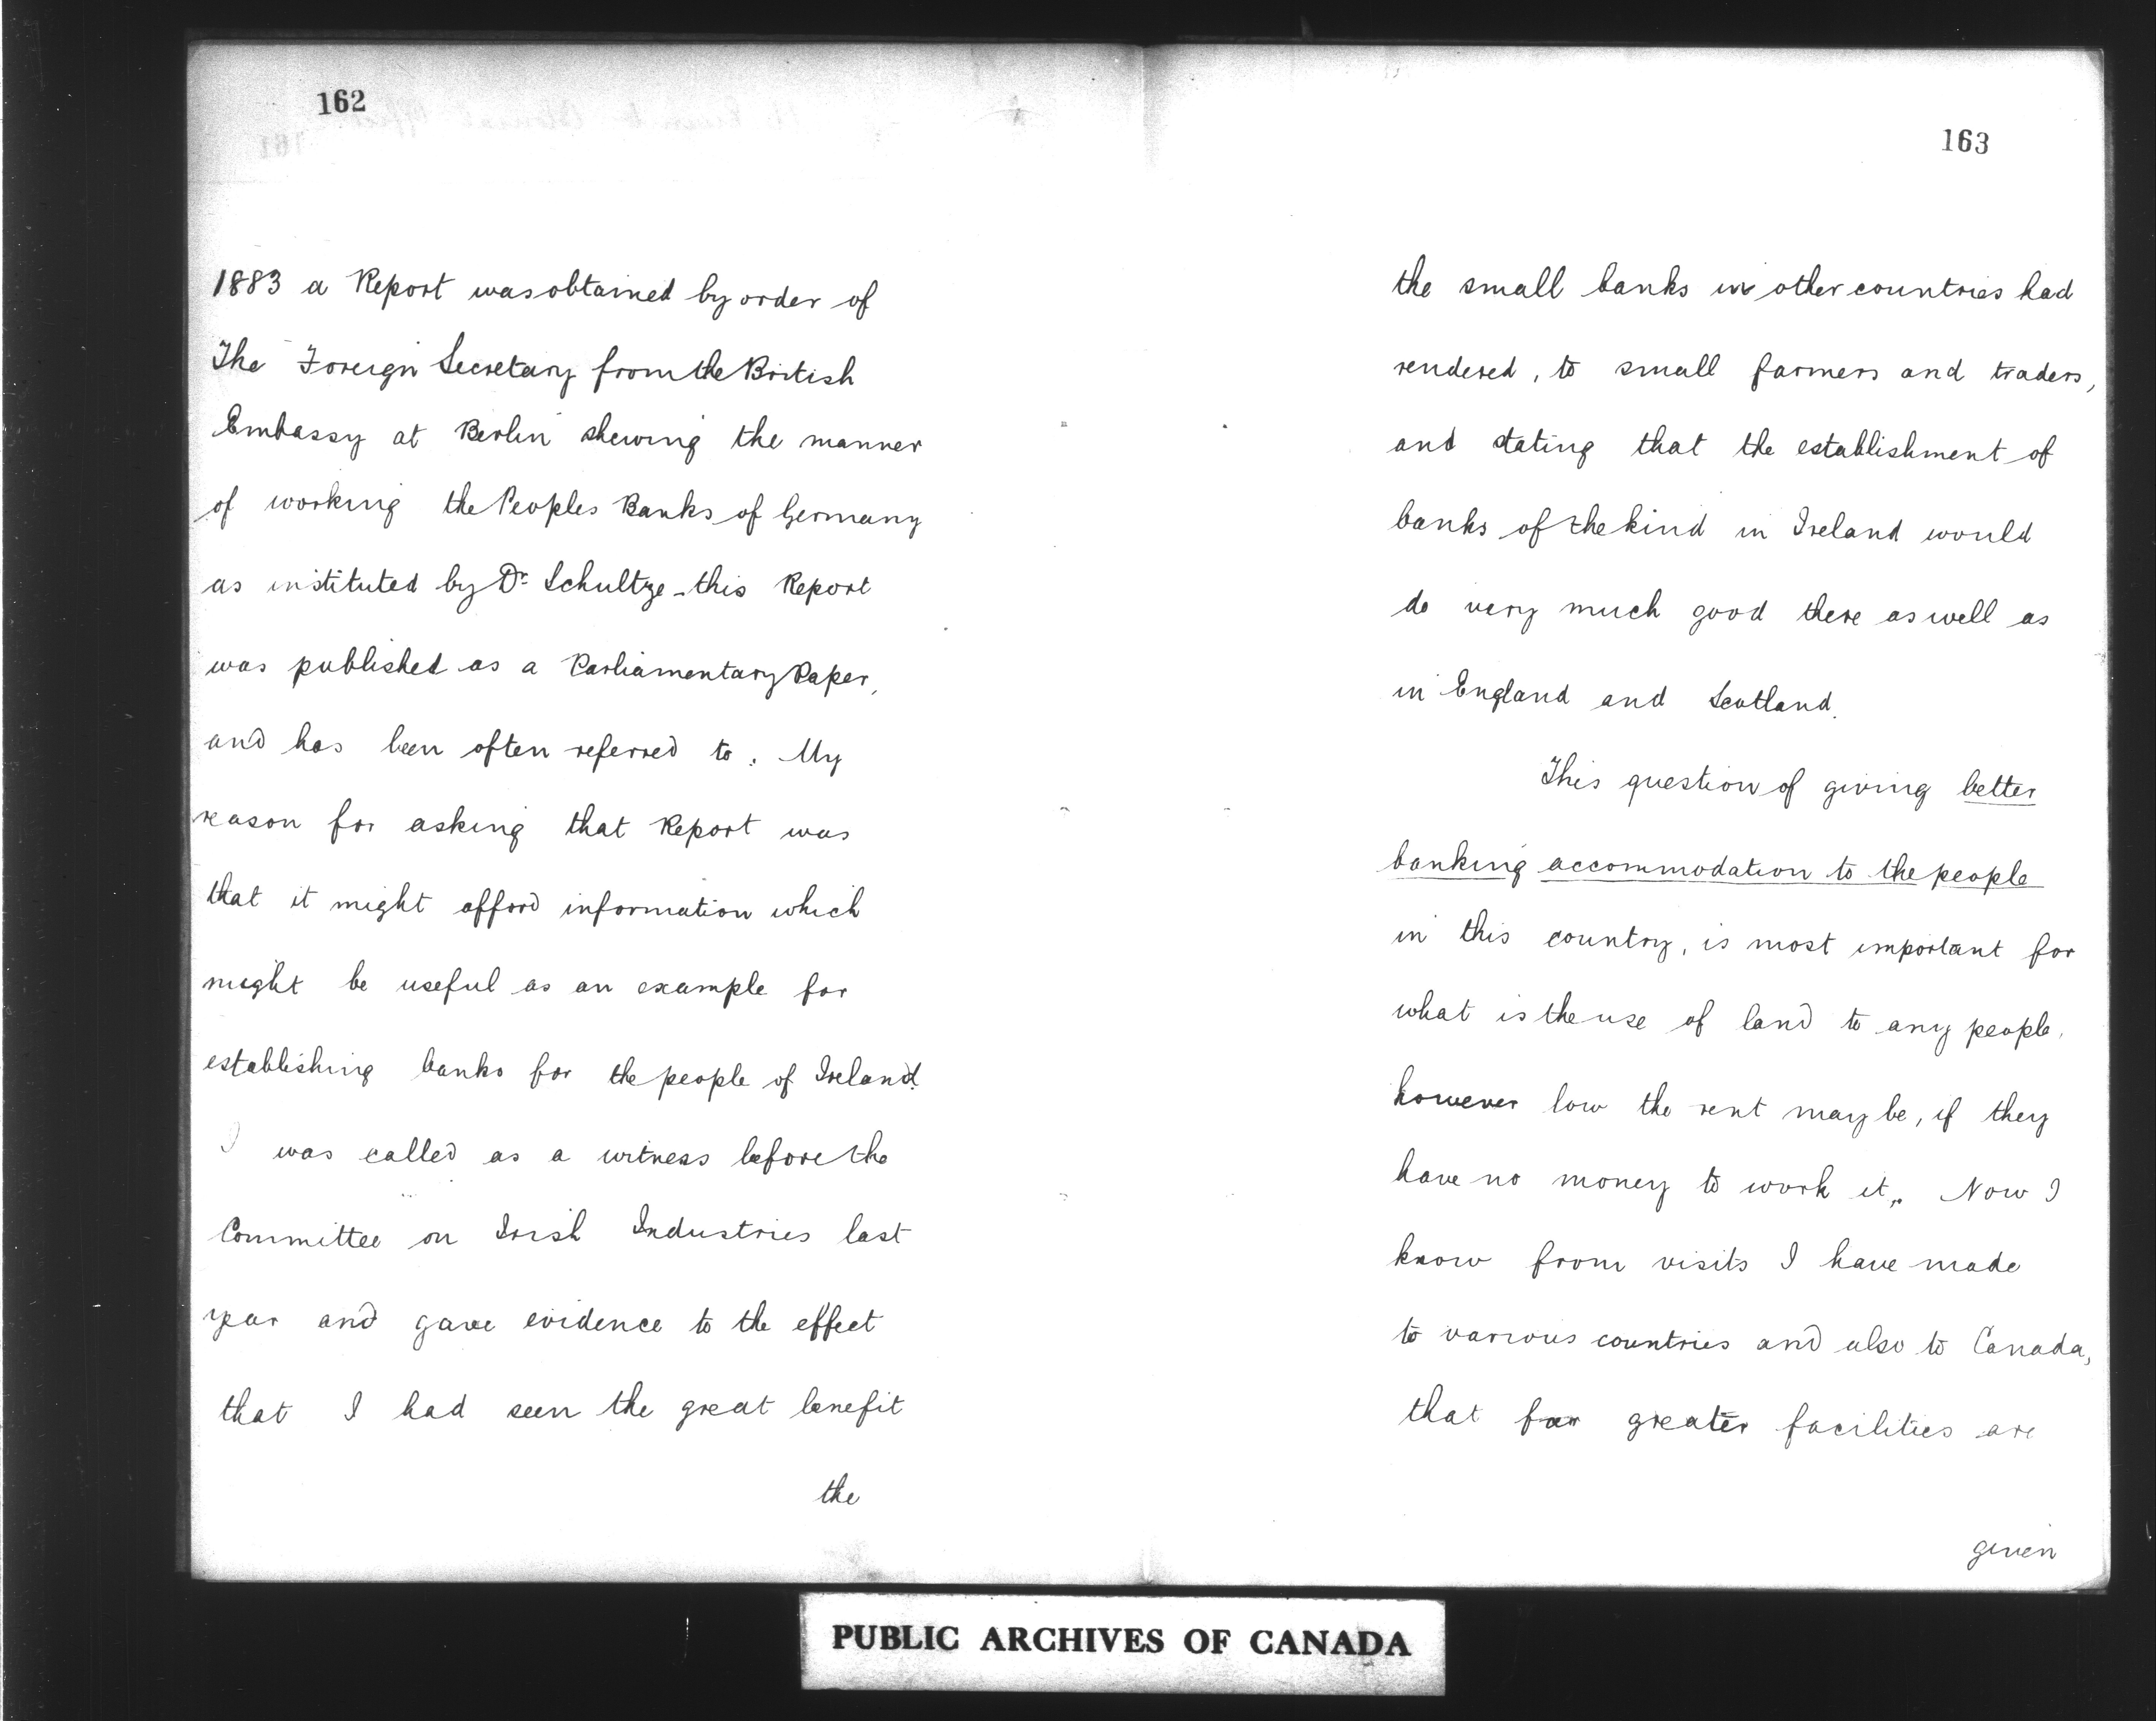 162
1883 a Report was obtained by order of
The Foreign Secretary from the British
Embassy at Berlin shewing the manner
of working the Peoples Banks of Germany
as instituted by Dr. Schultze - this Report
was published as a Parliamentary Paper,
and has been often referred to. My
reason for asking that Report was
that it might afford information which
might be useful as an example for
establishing banks for the people of Ireland.
I was called as a witness before the
Committee on Irish Industries last
year and gave evidence to the effect
that I had seen the great benefit
the
163
the small banks in other countries had
rendered, to small farmers and traders,
and stating that the establishment of
banks of the kind in Ireland would
do very much good there as well as
in England and Scotland.
This question of giving better
banking accommodation to the people
in this country, is most important for
what is the use of land to any people,
however low the rent may be, if they
have no money to work it. Now I
know from visits I have made
to various countries and also to Canada,
that far greater facilities are
given
PUBLIC ARCHIVES OF CANADA